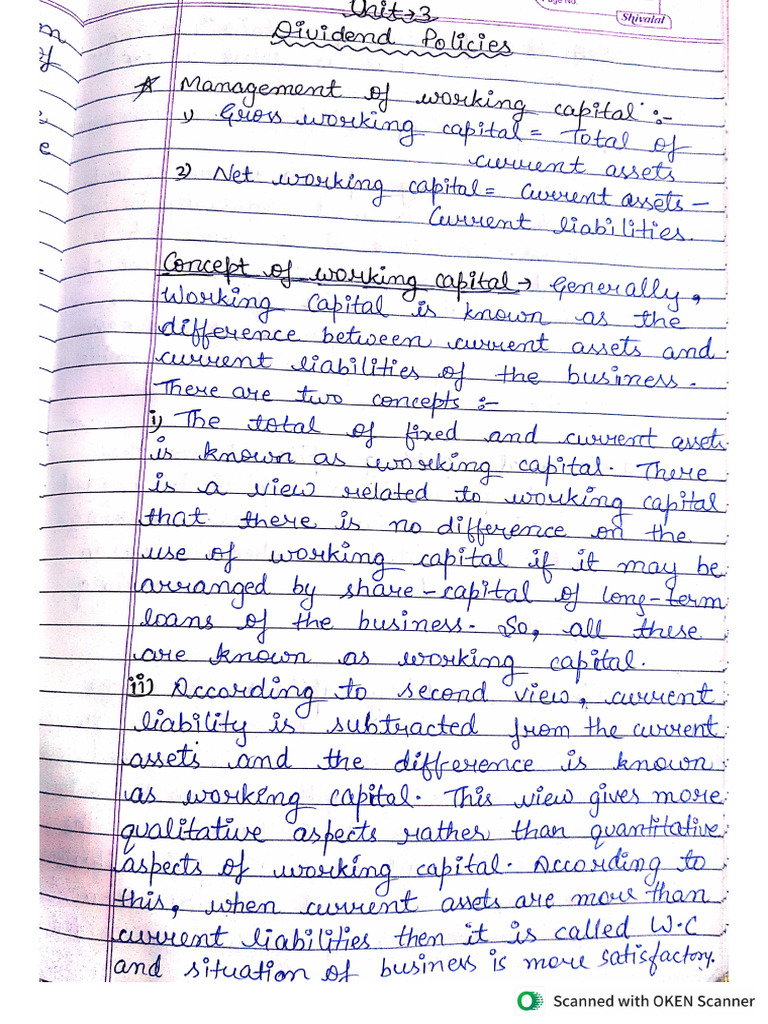 Unit→3
Page No.
Shivalal
Dividend Policies
m
of
e
* Management of working capital :-
1) Gross working capital = Total of
current assets
2) Net working capital = Current assets -
Current liabilities.
Concept of working capital → Generally,
Working Capital is known as the
difference between current assets and
current liabilities of the business.
There are two concepts :-
i) The total of fixed and current assets
is known as working capital. There
is a view related to working capital
that there is no difference on the
use of working capital if it may be
arranged by share-capital of long-term
loans of the business. So, all these
are known as working capital.
ii) According to second view, current
liability is subtracted from the current
assets and the difference is known
as working capital. This view gives more
qualitative aspects rather than quantitative
aspects of working capital. According to
this, when current assets are more than
current liabilities then it is called W.C
and situation of business is more satisfactory.
Scanned with OKEN Scanner